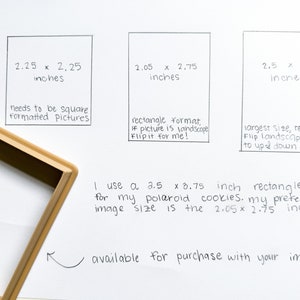 2.25 x 2.25
inches
needs to be square
formatted pictures
2.05 x 2.75
inches
rectangle format,
if picture is landscape
flip it for me!
2.5 x
inche
largest size,
flip landscap
to up & down
I use a 2.5 x 3.75 inch rectangle
for my polaroid cookies. my prefe
image size is the 2.05 x 2.75 inch
available for purchase with your im